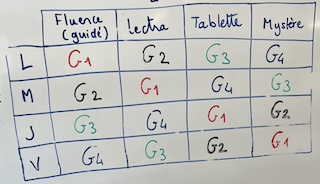 Fluence (guidé) Lectra Tablette Mystère
L G1 G2 G3 G4
M G2 G1 G4 G3
J G3 G4 G1 G2
V G4 G3 G2 G1